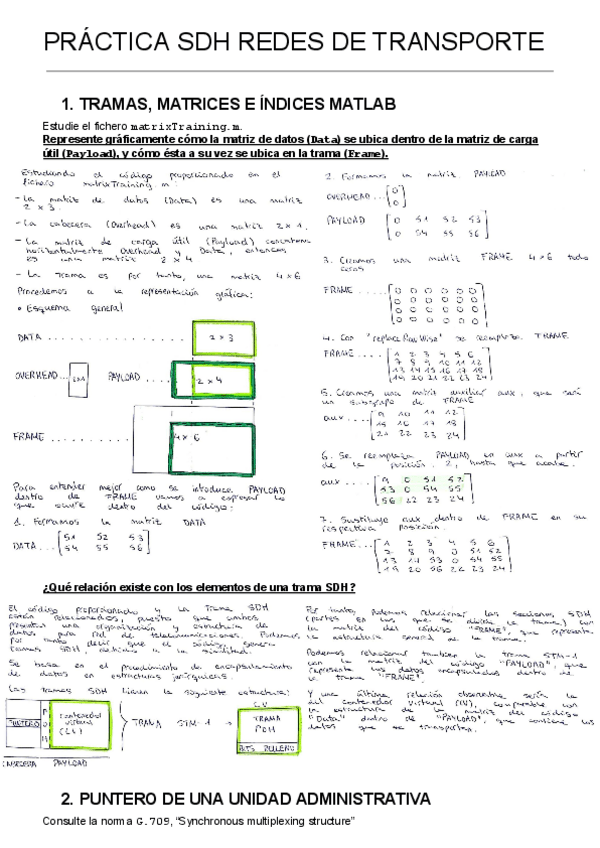 PRÁCTICA SDH REDES DE TRANSPORTE
1. TRAMAS, MATRICES E ÍNDICES MATLAB
Estudie el fichero matrixTraining.m.
Represente gráficamente cómo la matriz de datos (Data) se ubica dentro de la matriz de carga
útil (Payload), y cómo ésta a su vez se ubica en la trama (Frame).
Estudiando el código proporcionado en el
fichero matrixTraining.m:
- La matriz de datos (Data) es una matriz
2 x 3.
- La cabecera (Overhead) es una matriz 2x1.
- La matriz de carga útil (Payload) concatena
horizontalmente Overhead y Data, entonces
es una matriz 2x4
- La trama es por tanto, una matriz 4x6
Procedemos a la representación gráfica:
• Esquema general
DATA
2x3
OVERHEAD
2x1
PAYLOAD
2x4
FRAME
4x6
Para entender mejor como se introduce PAYLOAD
dentro de FRAME vamos a expresar lo
que ocurre dentro del código:
1. Formamos la matriz DATA
DATA ... [51 52 53
54 55 56]
2. Formamos la matriz PAYLOAD
OVERHEAD ... [0
0]
PAYLOAD [0 51 52 53
0 54 55 56]
3. Creamos una matriz FRAME 4x6 todo
ceros
FRAME .... [0 0 0 0 0 0
0 0 0 0 0 0
0 0 0 0 0 0
0 0 0 0 0 0]
4. Con "replaceRowWise" se remplaza FRAME
FRAME .... [1 2 3 4 5 6
7 8 9 10 11 12
13 14 15 16 17 18
19 20 21 22 23 24]
5. Creamos una matriz auxiliar aux, que será
un subgrupo de FRAME
aux ... [9 10 11 12
15 16 17 18
21 22 23 24]
6. Se reemplaza PAYLOAD en aux a partir
de la posición 2, hasta que acabe.
aux .... [9 0 51 52
53 0 54 55
56 22 23 24]
7. Sustituye aux dentro de FRAME en su
respectiva posición.
FRAME... [1 2 3 4 5 6
7 8 9 0 51 52
13 14 53 0 54 55
19 20 56 22 23 24]
¿Qué relación existe con los elementos de una trama SDH?
El código proporcionado y la trama SDH
están relacionados, puesto que ambos
presentan una organización y estructura de
datos para red de telecomunicaciones. Podemos
por tanto decir que el código genera
tramas SDH, debido a la similitud.
Se basa en el procedimiento de encapsulamiento
de datos en estructuras jerárquicas.
Las tramas SDH tienen la siguiente estructura:
PUNTERO
P
O
H
contenedor
virtual
TRAMA STM-1
C.V
TRAMA
PDH
BITS RELLENO
CABECERA PAYLOAD
Por tanto, podemos relacionar las secciones SDH
(partes en las que se divide la trama) con
la matriz del código "FRAME", que representa
la estructura general de la trama.
Podemos relacionar también la trama STM-1
con la matriz del código "PAYLOAD", que
representa los datos encapsulados dentro de
la trama "FRAME"
Y una última relación observante, sería la
del contenedor virtual (VC), comparable con
la estructura de la matriz del código
"Data" dentro de "PAYLOAD", que contiene los
datos que se transportan.
2. PUNTERO DE UNA UNIDAD ADMINISTRATIVA
Consulte la norma G.709, "Synchronous multiplexing structure"